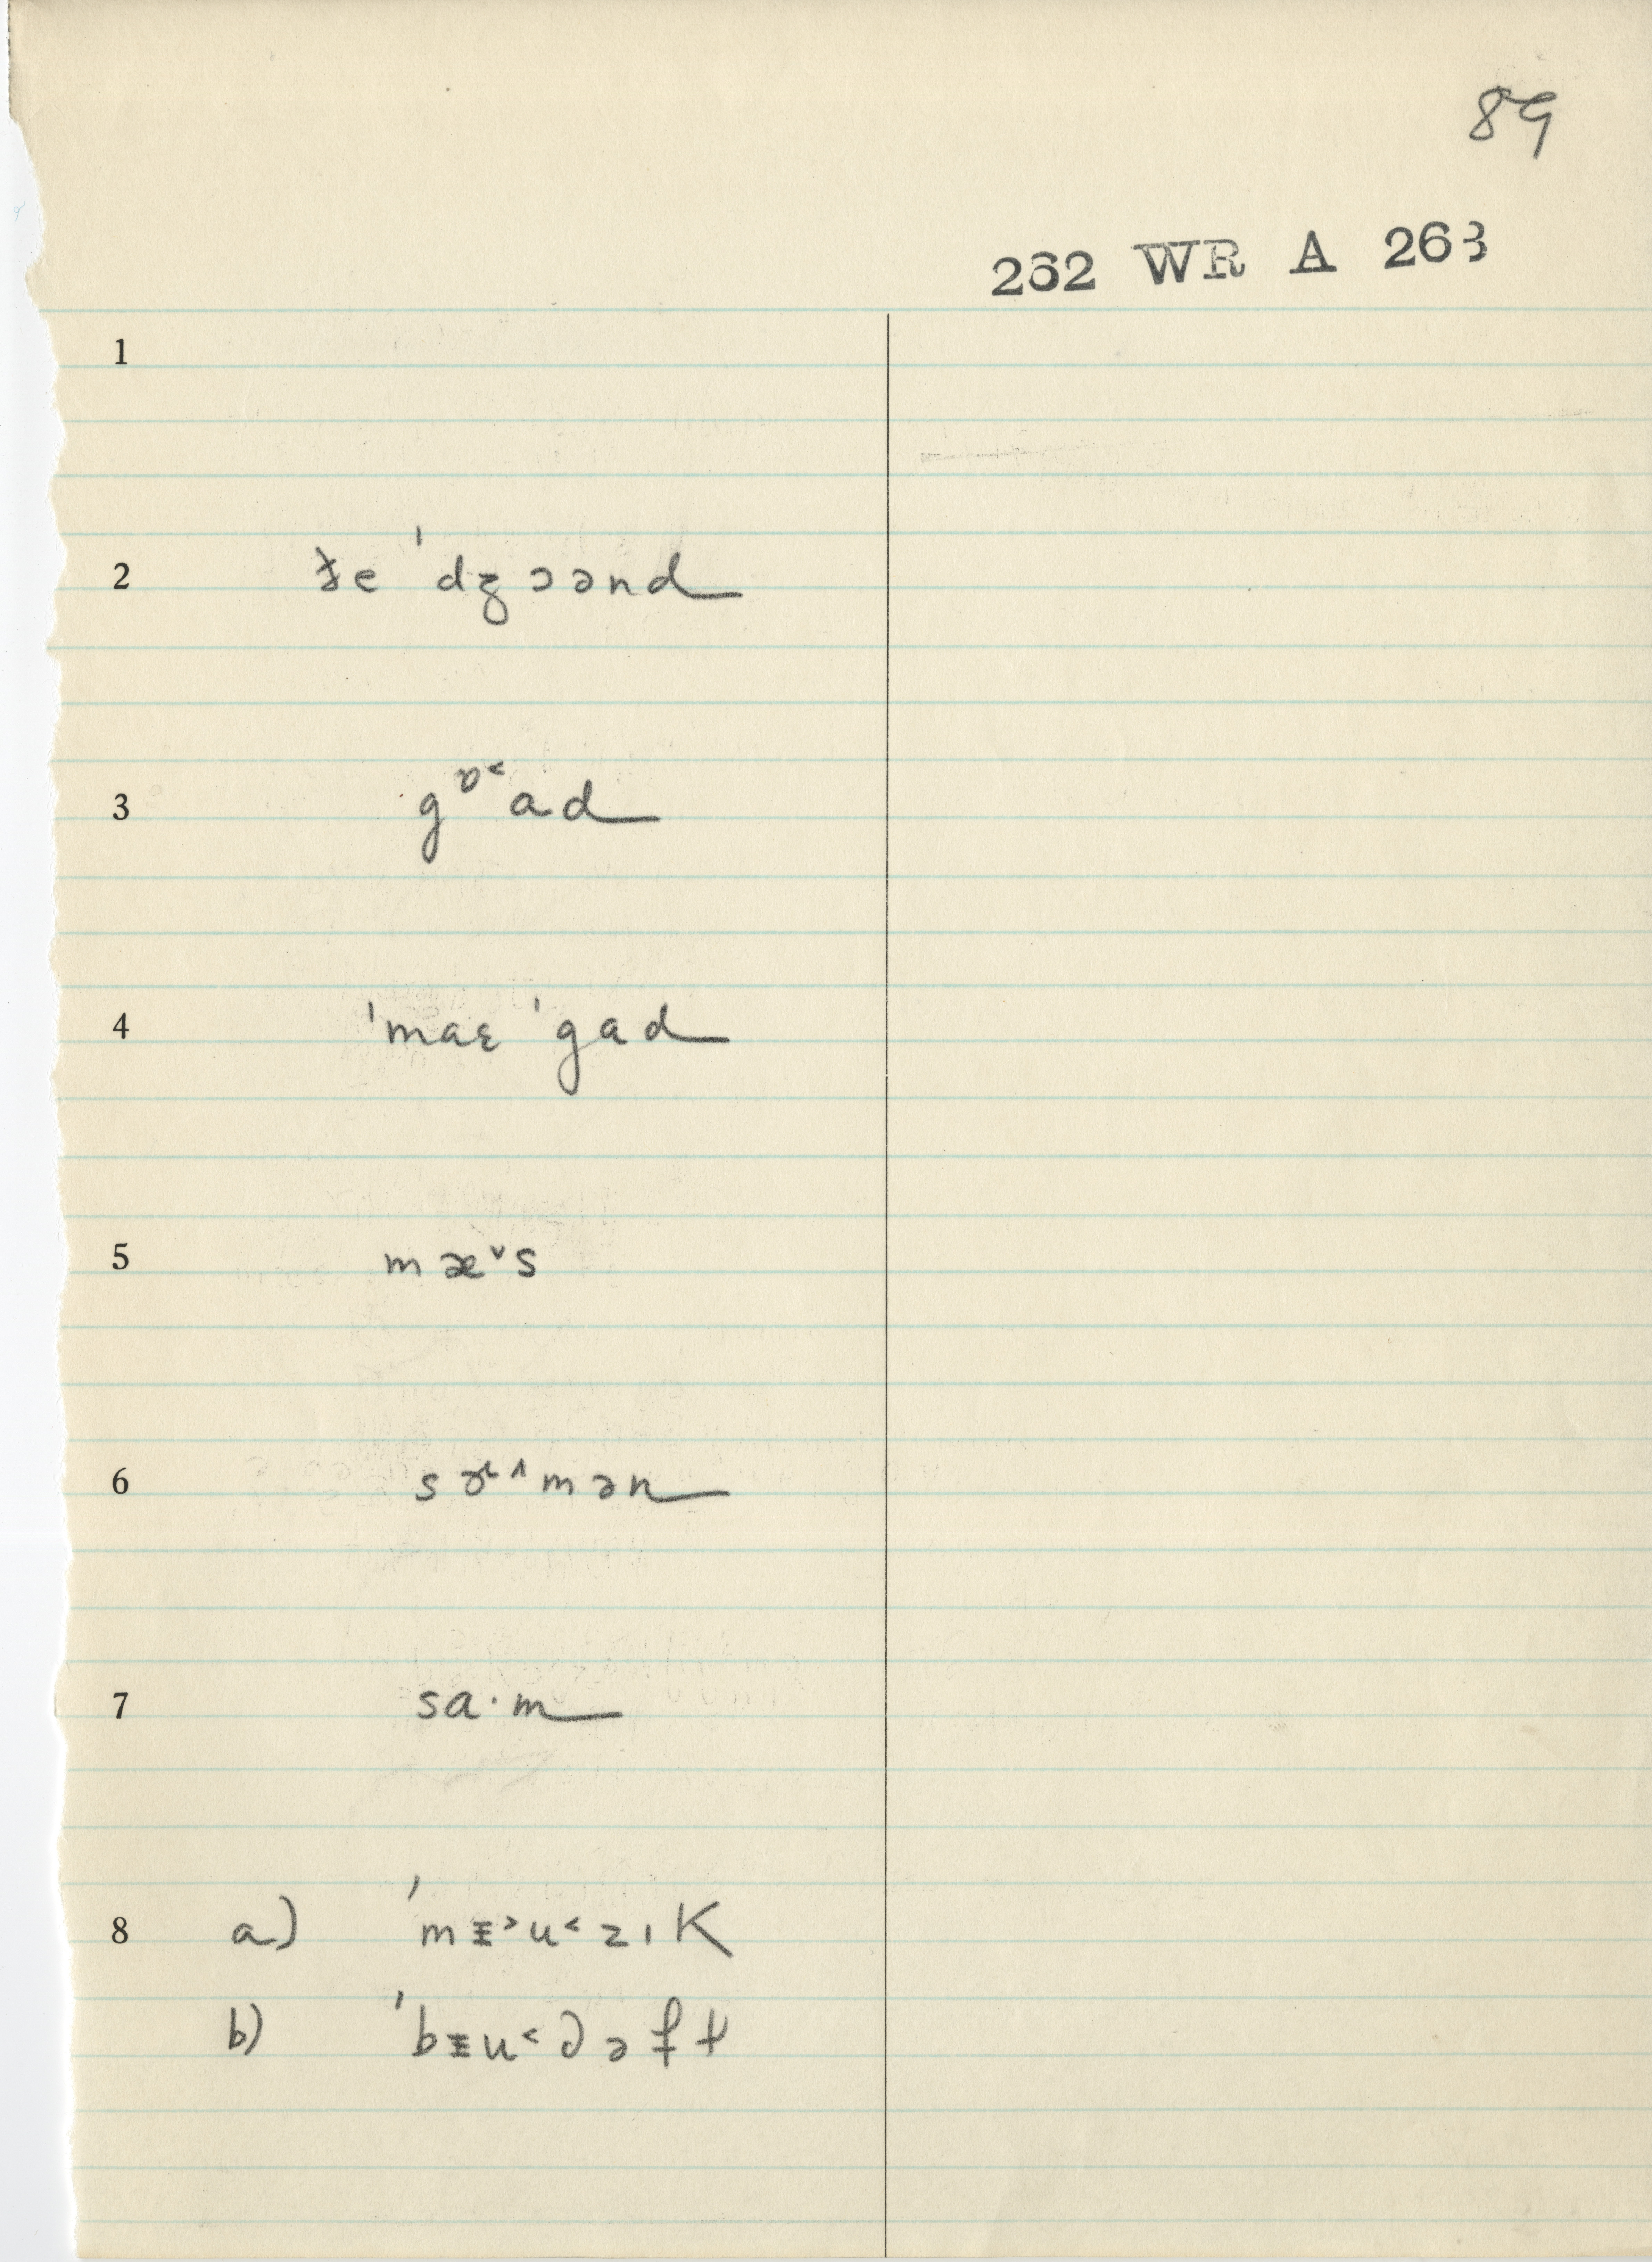 89
262 WR A 263
1
2 ɫe ˈdʒɔənd
3 gɒ˂ad
4 ˈmaɛ ˈgad
5 mæ˅s
6 sɚ˄mən
7 sa·m
8 a) ˈmᵻ˃u˂zıK
b) ˈbᵻu˂də